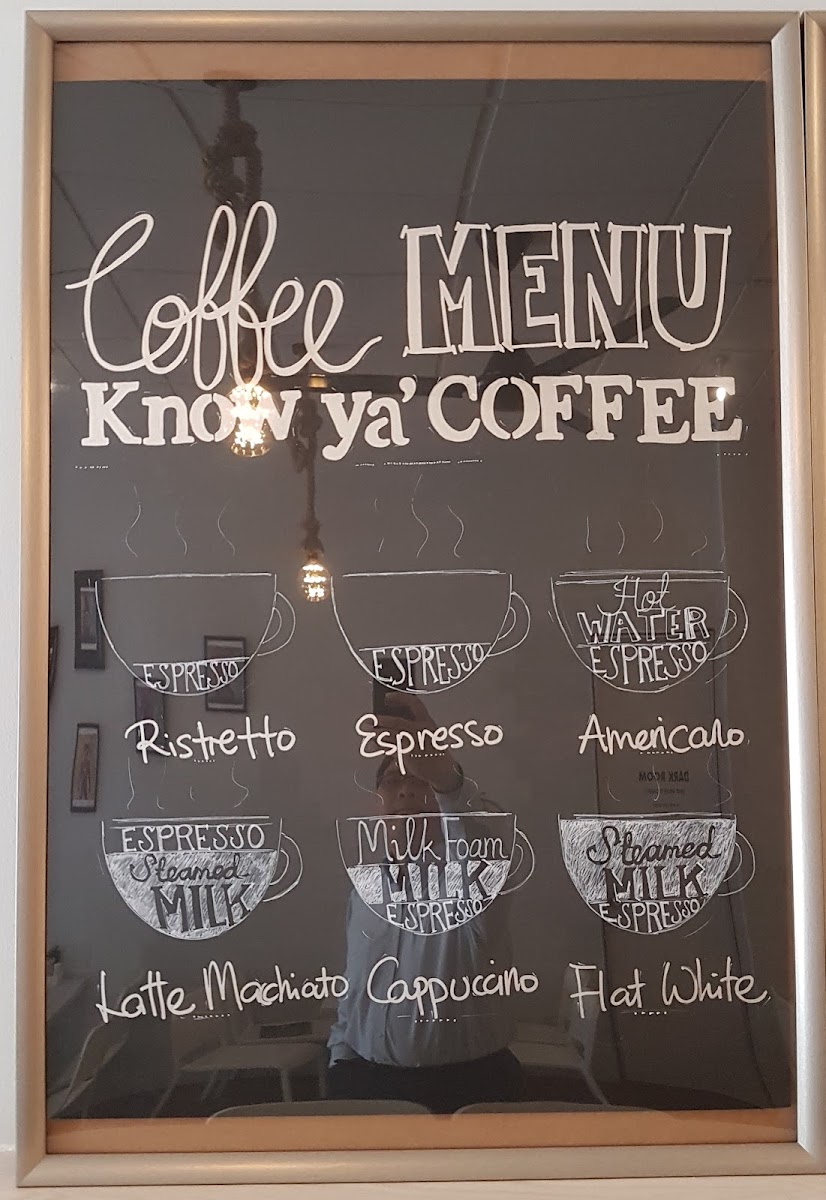 Coffee MENU
Know ya' COFFEE
ESPRESSO
Ristretto
ESPRESSO
Espresso
Hot
WATER
ESPRESSO
Americano
ESPRESSO
Steamed
MILK
Latte Machiato
Milk Foam
MILK
ESPRESSO
Cappuccino
Steamed
MILK
ESPRESSO
Flat White
DARK ROOM